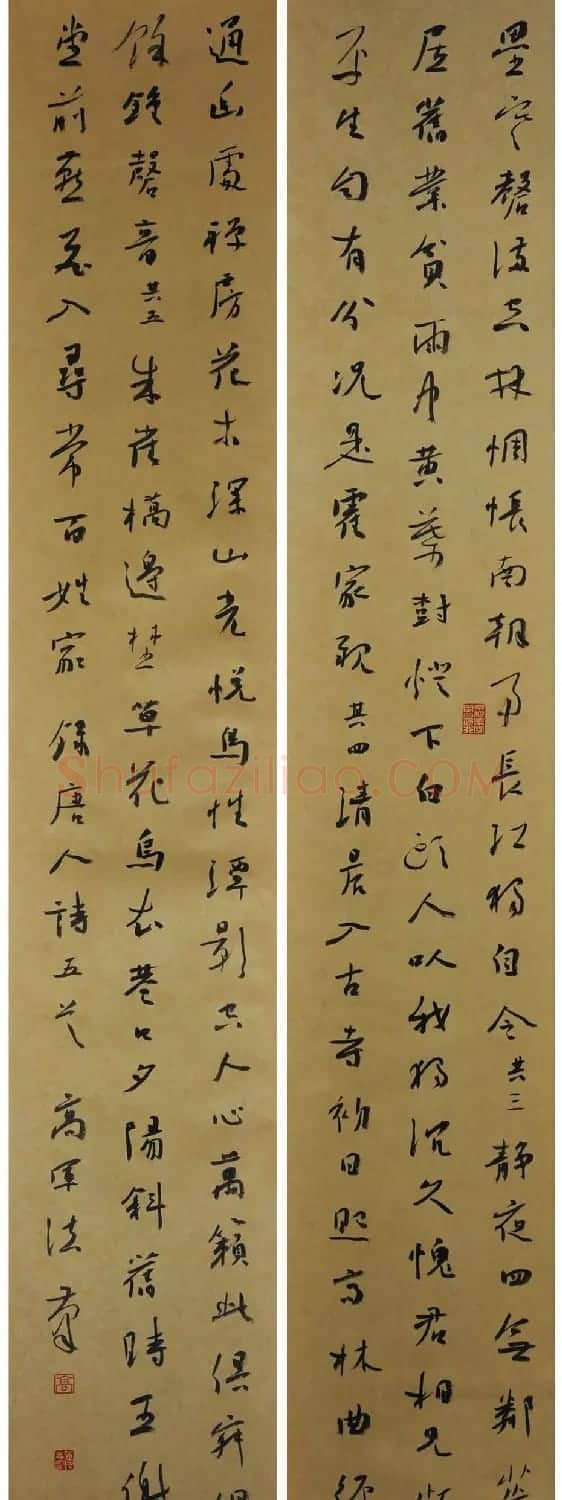 壘寒磬滿空林惆悵南朝事長江獨自今其三靜夜四無鄰荒
居舊業貧雨中黃葉樹燈下白頭人以我獨沉久愧君相見頻
平生自有分況是霍家親其四清晨入古寺初日照高林曲徑
通幽處禪房花木深山光悅鳥性潭影空人心萬籟此俱寂但
餘鐘磬音其五朱雀橋邊埜草花烏衣巷口夕陽斜舊時王謝
堂前燕飛入尋常百姓家錄唐人詩五首高軍法
Shufaziliao.COM